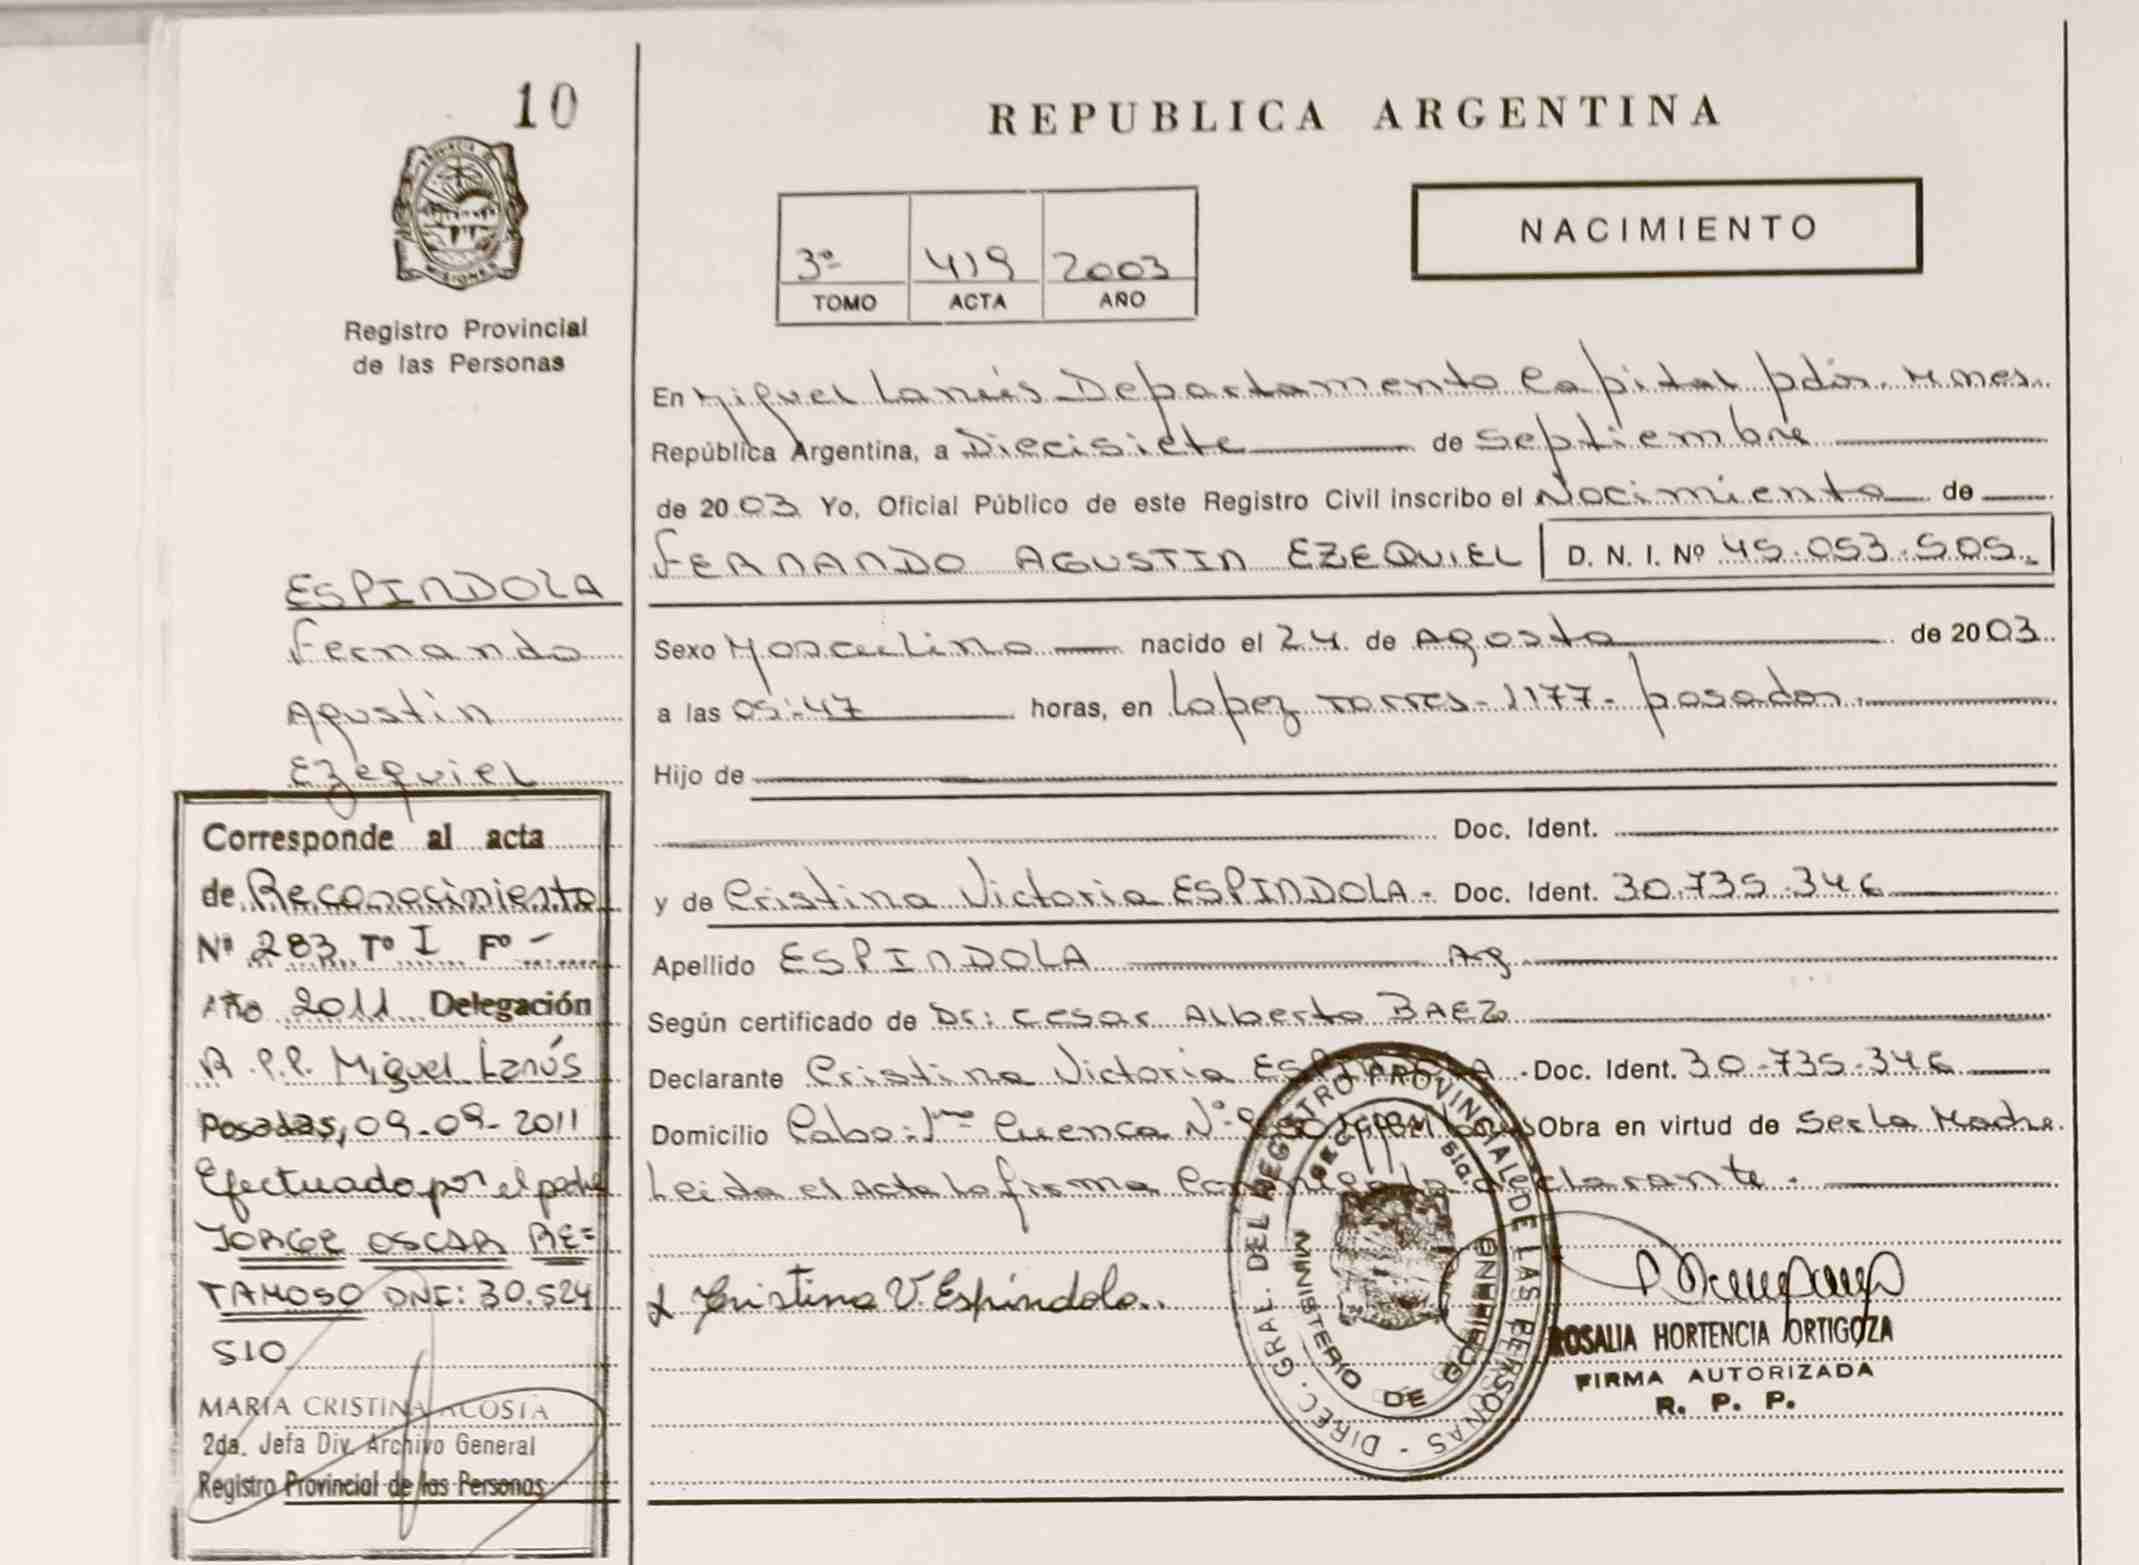 10
REPUBLICA ARGENTINA
NACIMIENTO
3º 419 2003
TOMO ACTA AÑO
PROVINCIA DE
MISIONES
Registro Provincial
de las Personas
ESPINDOLA
Fernando
Agustin
Ezequiel
Corresponde al acta
de Reconocimiento
Nº 283 Tº I Fº -
Año 2011 Delegación
R.P.P. Miguel Lanús
Posadas, 09-09-2011
Efectuado por el padre
JORGE OSCAR RE=
TAMOSO DNI: 30.524
510
MARIA CRISTINA ACOSTA
2da. Jefa Div. Archivo General
Registro Provincial de las Personas
En Miguel Lanús Departamento Capital pdas. Mnes.
República Argentina, a Diecisiete de Septiembre
de 2003 Yo, Oficial Público de este Registro Civil inscribo el Nacimiento de
FERNANDO AGUSTIN EZEQUIEL D. N. I. Nº 45.053.505.
Sexo Masculino nacido el 24 de Agosto de 2003
a las 05:47 horas, en Lopez Torres-1177-posadas.
Hijo de
Doc. Ident.
y de Cristina Victoria ESPINDOLA- Doc. Ident. 30.735.346
Apellido ESPINDOLA
Según certificado de Dr: Cesar Alberto BAEZ
Declarante Cristina Victoria ESPINDOLA - Doc. Ident. 30-735-346
Domicilio Cabo: Cuenca Nº Obra en virtud de Ser la Madre.
Leida el acta la firma declarante.
Cristina V. Espíndola.
DIREC. GRAL. DEL REGISTRO PROVINCIAL DE LAS PERSONAS -
MINISTERIO DE GOBIERNO
ROSALIA HORTENCIA ORTIGOZA
FIRMA AUTORIZADA
R. P. P.